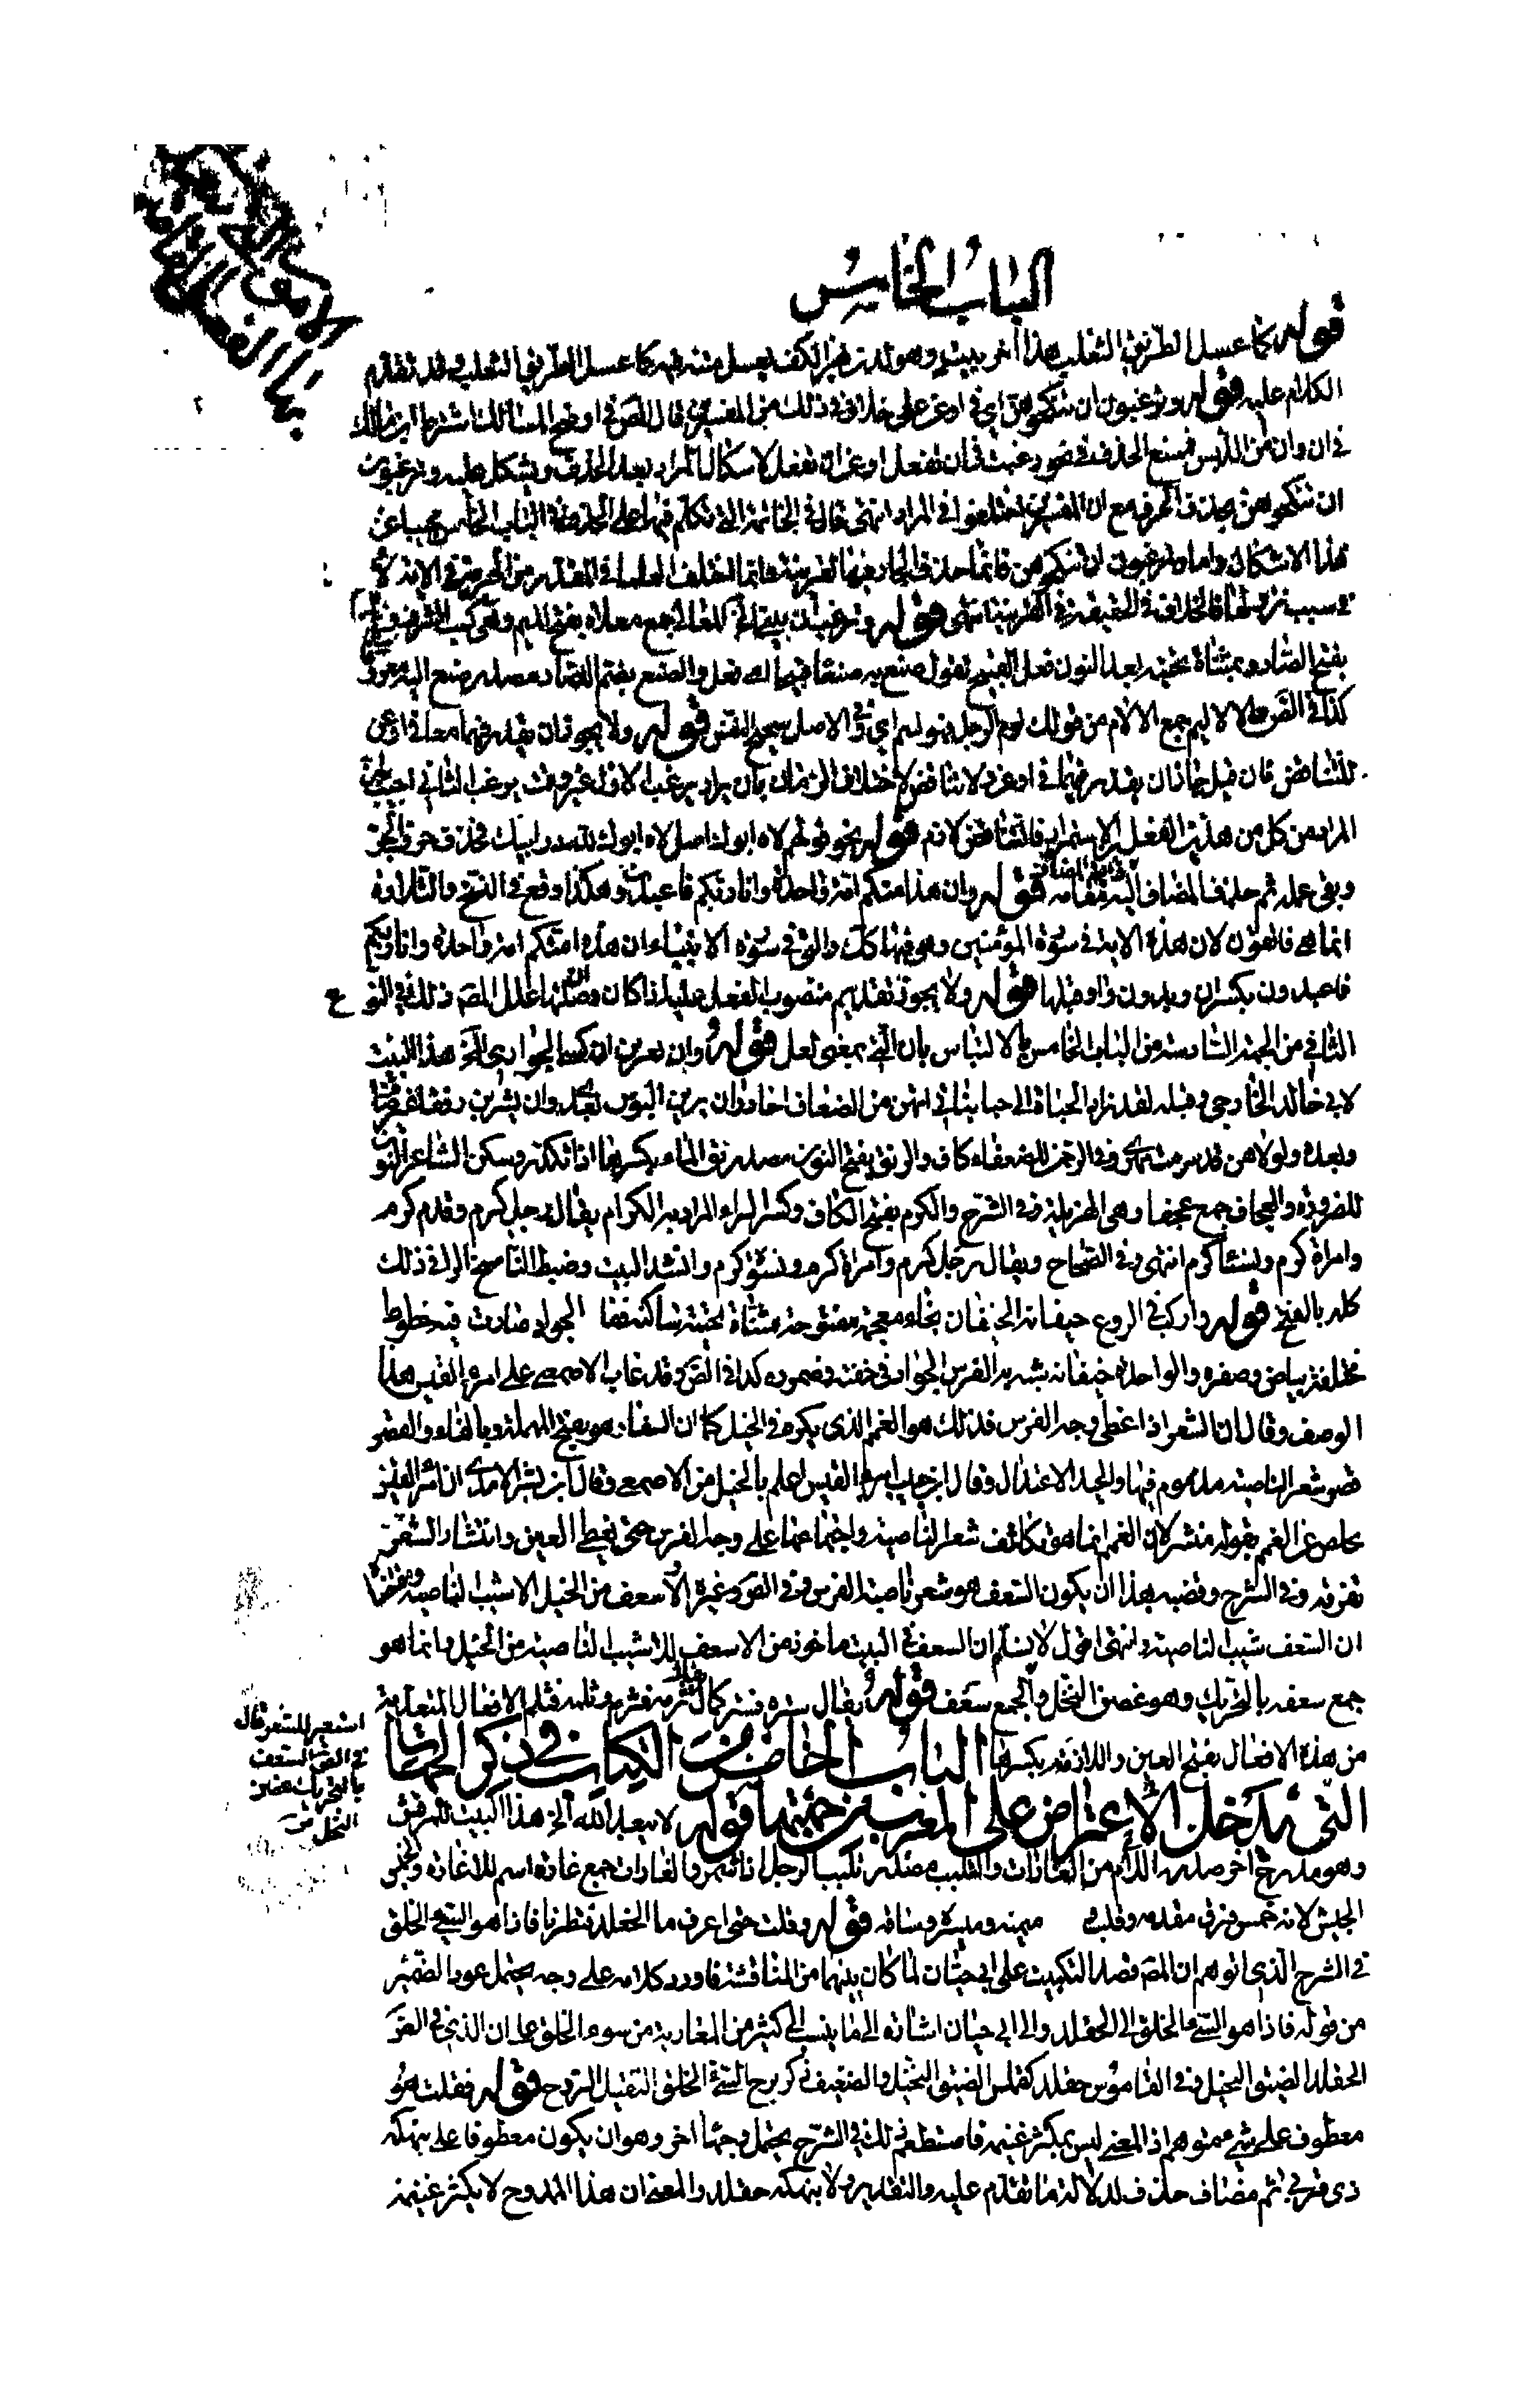 الباب الخامس
قوله كما عسل الطريق الثعلب هذا آخر بيت وهو لدن بهز الكف يعسل متنه فيه كما عسل الطريق الثعلب وقد تقدم
الكلام عليه قوله وترغبون ان تنكحوهن اي في او عن على خلاف في ذلك من المفسرين قال المص في اوضح المسالك اشترط ابن مالك
في ان وان امن اللبس فمنع الحذف في نحو رغبت في ان تفعل او عن ان تفعل لاشكال المراد بعد الحذف ويشكل عليه وترغبون
ان تنكحوهن بحذف الحرف مع ان المفسرين اختلفوا في المراد انتهى قال في الخاتمة التي تكلم فيها على الحذف في الباب الخامس مجيبا عن
هذا الاشكال واما وترغبون ان تنكحوهن فانما حذف الجار فيها لقرينة وانما اختلف العلماء في المقدر من الحرفين في الاية لاختلافهم
في سبب نزولها فالخلاف في الحقيقة في القرينة انتهى قوله ويرغب ان يبني المعالي جمع معلاة بفتح الميم وهي كسب الشرف وصنيع
بفتح الصاد ومثناة تحتية بعد النون فعل القبيح تقول صنع به صنيعا قبيحا اي فعل والصنع بضم الصاد مصدر صنع اليه معروفا
كذا في القر والالايم جمع الالام من قولك لؤم الرجل فهو لئيم اي في الاصل شحيح النفس قوله ولا يجوز ان يقدر فيهما معا في او عن
للتناقض فان قيل جاز ان يقدر فيهما في او عن ولا تناقض لاختلاف الزمان بان يراد بيرغب الاول غير وقت يرغب الثاني اجيب بان
المراد من كل من هذين الفعل الاستمرار فالتناقض لازم قوله نحو قولهم لاه ابوك اصل لاه ابوك لله در ابيك فحذف حرف الجر
وبقي عمله ثم حذف المضاف واقيم المضاف اليه مقامه قوله وان هذا امتكم امة واحدة وانا ربكم فاعبدون وهكذا وقع في النسخ والتلاوة
انما هي فاتقون لان هذه الاية في سورة المؤمنين وهي فيها كذلك والتي في سورة الانبياء ان هذه امتكم امة واحدة وانا ربكم
فاعبدون بكسر ان وبدون واو قبلها قوله ولا يجوز تقديم منصوب الفعل عليه اذا كان ان وصلتها علل المص ذلك في النوع
الثاني من الجهة السادسة من الباب الخامس بالالتباس بان التي بمعنى لعل قوله وان يعرين ان كسي الجواري الخ هذا البيت
لابي خالد الخارجي وقبله لقد زاد الحياة الي حبا بناتي انهن من الضعاف احاذر ان يرين البؤس بعدي وان يشربن رنقا غير صاف
وبعده ولولا هن قد سومت مهري وفي الرحمن للضعفاء كاف والرنق بفتح النون مصدر رنق الماء بكسرها اذا تكدر وسكن الشاعر النون
للضرورة والعجاف جمع عجفا وهي المهزولة وفي الشرح والكرم بفتح الكاف وكسر الراء المراد به الكرام يقال رجل كرم وقوم كرم
وامراة كرم ونساء كرم انتهى وفي الصحاح ويقال رجل كرم وامراة كرم ونسوة كرم وانشد البيت وضبط الناسخ الرا في ذلك
كله بالفتح قوله واركب في الروع خيفانة الخيفان بخاء معجمة مفتوحة ومثناة تحتية ساكنة ففا الجراد اذا صارت فيه خطوط
مختلفة بياض وصفره والواحدة خيفانة شبه بها الفرس الجواد في خفته وضموره كذا في الص وقد عاب الاصمعي على امرئ القيس هذا
الوصف وقال ان الشعر اذا غطى وجه الفرس فذلك هو الغمم الذي يكره في الخيل كما ان السفا وهو بفتح المهملة وبالفاء والقصر
قصر شعر الناصية مذموم فيها والجيد الاعتدال وقال ابن حبيب امرء القيس اعلم بالخيل من الاصمعي وقال ابن بشر الامدي ان امر القيس
تخلص عن الغمم بقوله منتشر لان الغمم انما هو تكاثف شعر الناصية واجتماعها على وجه الفرس حتى يغطي العين وانتشار الشعر
تفرقه وفي الشرح وقضية هذا ان يكون السعف هو شعر ناصية الفرس وفي الص وغيره الاسعف من الخيل الاشيب الناصية ومقتضاه
ان السعف شيب الناصية انتهى اقول لا نسلم ان السعف في البيت ماخوذ من الاسعف للاشيب الناصية من الخيل وانما هو
جمع سعفه بالتحريك وهو غصن النخل والجمع سعف قوله يقال ستره فستر كما يقال ثرمه فثرم وثلمه فثلم الافعال المتعدية
من هذه الافعال بفتح العين واللازمة بكسرها الباب الخامس من الكتاب في ذكر الجهات
التي يدخل الاعتراض على المعرب من جهتها قوله لا يبعد الله الخ هذا البيت للمرقش
وهو مدرج اخر صدره اللام من الغارات والتلبب مصدر تلبب الرجل اذا تشمر والغارات جمع غاره اسم للاغاره والخميس
الجيش لانه خمس فرق مقدمه وقلب وميمنه وميسرة وساقه قوله وقلت حتى اعرف ما الحقلد فنظرنا فاذا هو السيئ الخلق
في الشرح الذي اتوهم ان المص قصد التنكيت على ابي حيان لما كان بينهما من المنافسة فاورد كلامه على وجه يحتمل عود الضمير
من قوله فاذا هو السيء الخلق الى الحقلد والى ابي حيان اشارة الى ما ينسب الى كثير من المغاربة من سوء الخلق على ان الذي في الص
الحقلد الضيق البخيل وفي القاموس حقلد كعملس الضيق البخيل والضعيف وكزبرج السيئ الخلق الثقيل الروح قوله فقلت هو
معطوف على شيء متوهم اذ المعنى ليس بمكثر غنيمة فاستعظم ذلك في الشرح يحتمل وجها اخر وهو ان يكون معطوفا على بنهكه
ذي قربى ثم مضاف حذف لدلالة ما تقدم عليه والتقدير ولا بنهكه حقلد والمعنى ان هذا الممدوح لا يكثر غنيمة
استعير للشعر قال
في الص السعف
بالتحريك غصن
النخل